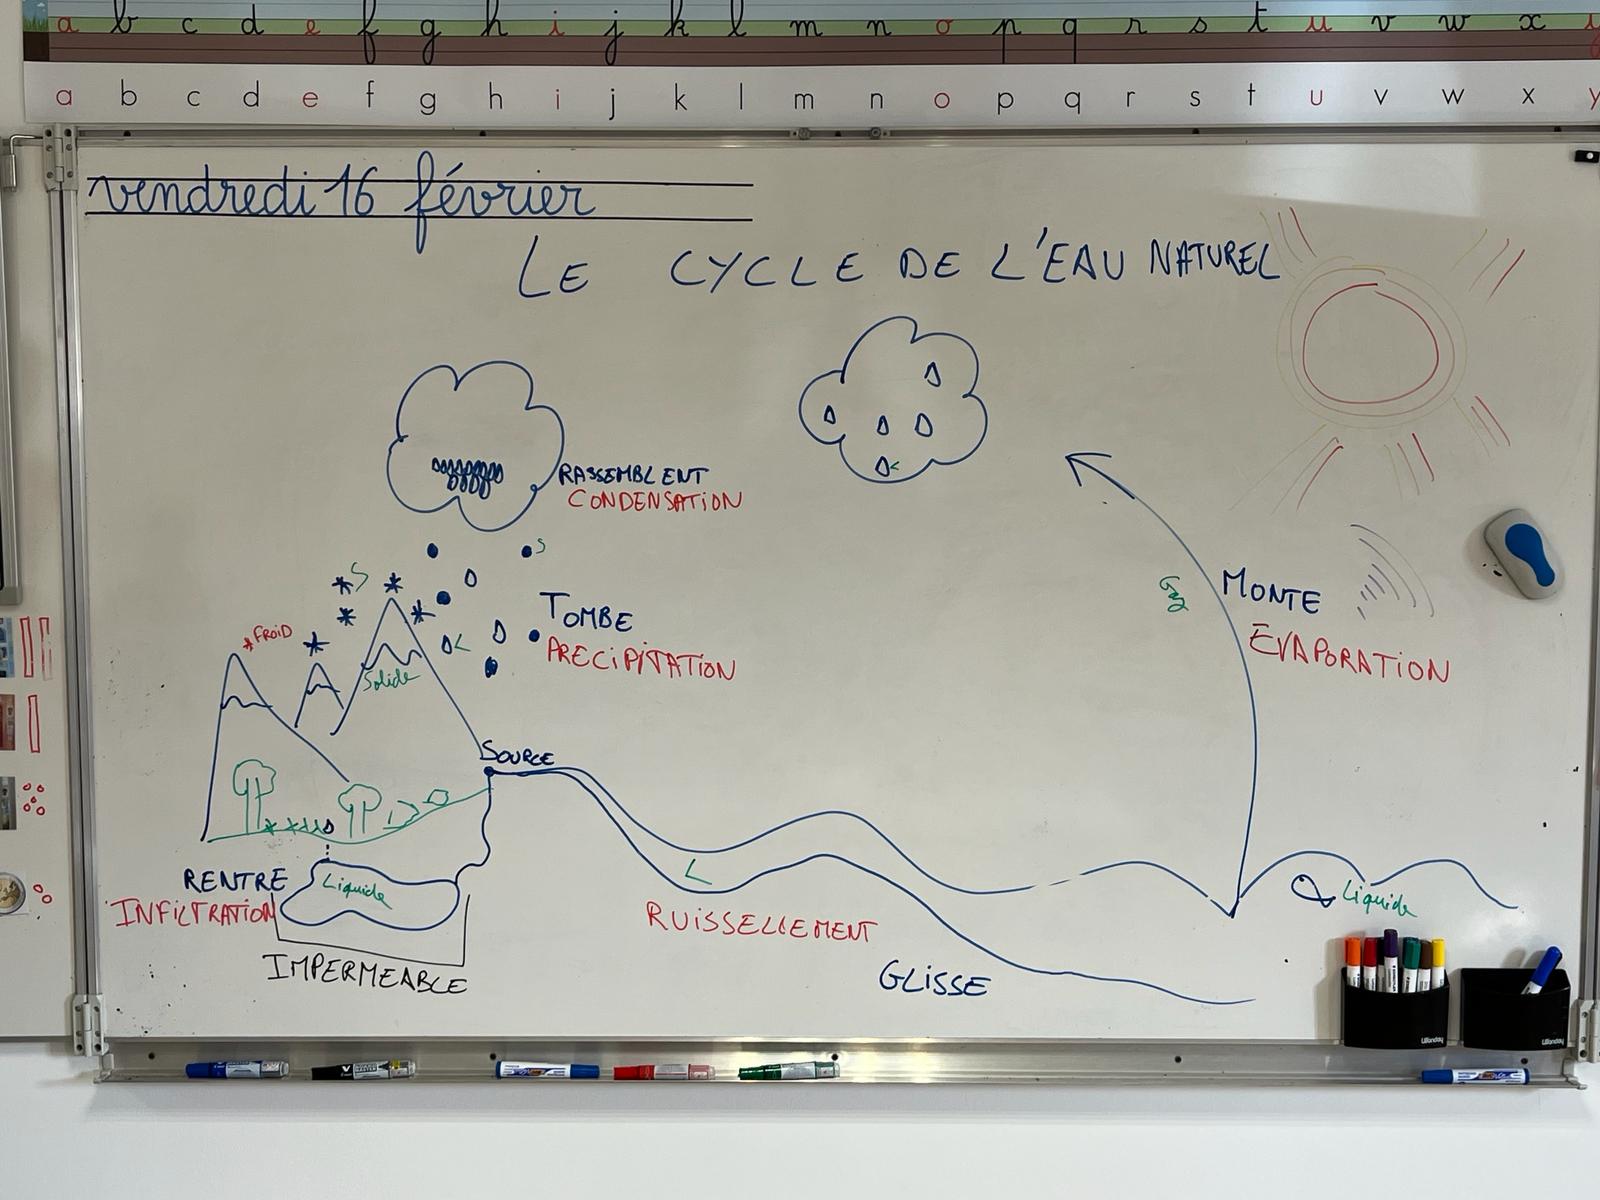 a b c d e f g h i j k l m n o p q r s t u v w x y
a b c d e f g h i j k l m n o p q r s t u v w x y
vendredi 16 février
LE CYCLE DE L'EAU NATUREL
RASSEMBLENT
CONDENSATION
S
S
L
TOMBE
PRECIPITATION
*FROID
Solide
MONTE
EVAPORATION
SOURCE
RENTRE
INFILTRATION
Liquide
IMPERMEABLE
L
RUISSELLEMENT
GLISSE
Liquide